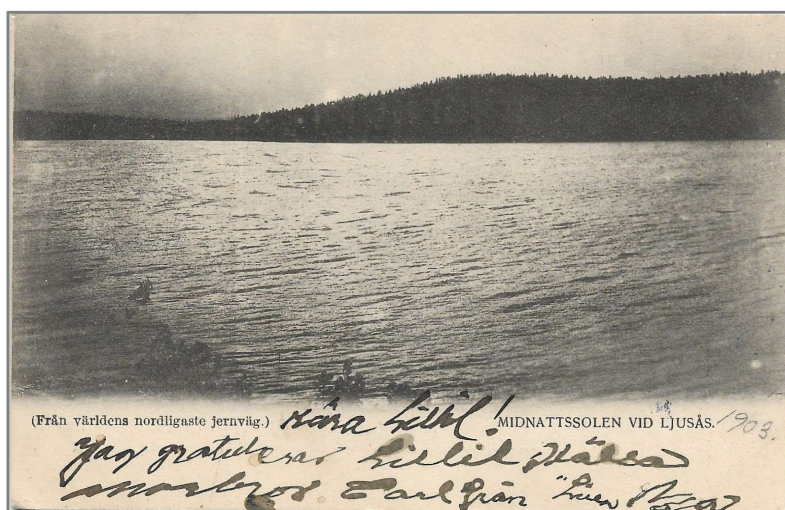 (Från världens nordligaste jernväg.) Kära Lillil! MIDNATTSSOLEN VID LJUSÅS. 1903.
Jag gratulerar Lillil Hälsa
morbror Carl från